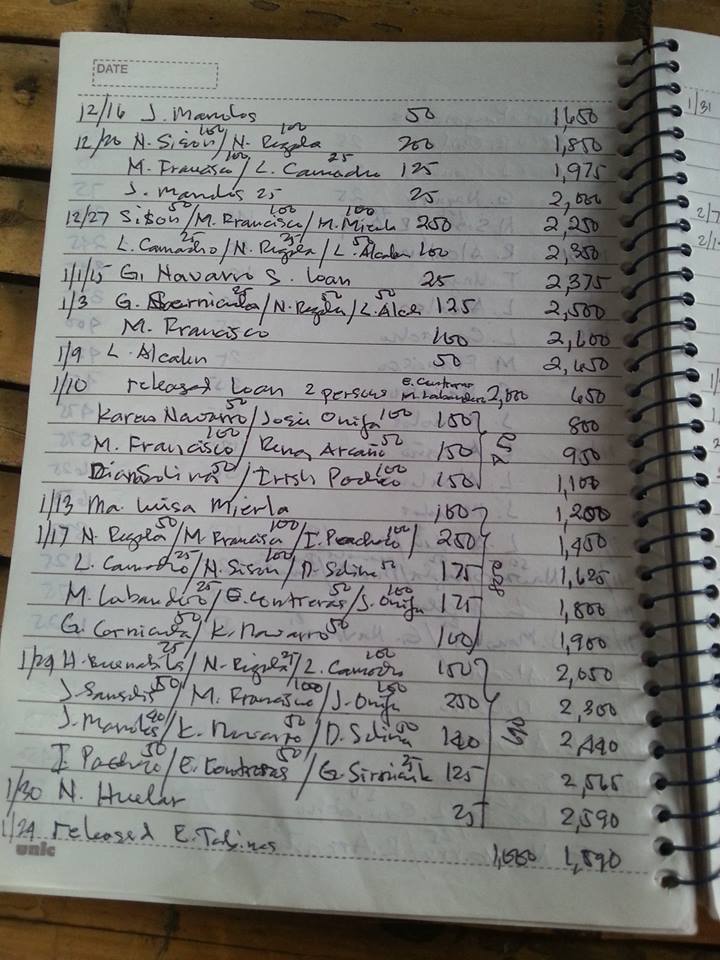 DATE
12/16 J. Manolos 50 1,650
12/20 N. Sison 100 / N. Regola 100 200 1,850
M. Francisco 100 / L. Camacho 25 125 1,975
J. Manolos 25 25 2,000
12/27 Sison 50 / M. Francisco 100 / M. Mierla 100 250 2,250
L. Camacho 25 / N. Regola 25 / L. Alcala 50 100 2,350
1/1/15 G. Navarro S. loan 25 2,375
1/3 G. 25 / N. Regola 50 / L. Alcala 50 125 2,500
M. Francisco 100 2,600
1/9 L. Alcala 50 2,650
1/10 released loan 2 persons E. Contreras M. Labandero 2,000 650
Karen Navarro 50 / Josie Onifa 100 150 800
M. Francisco 100 / Rena Arcaño 50 150 950
450
Dian Solina 50 / Irish Pacheco 100 150 1,100
1/13 Ma. Luisa Mierla 100 1,200
1/17 N. Regola 50 / M. Francisco 100 / I. Pacheco 100 / 250 1,450
L. Camacho 25 / N. Sison 100 / D. Solina 50 175 1,625
800
M. Labandero 25 / E. Contreras 50 / J. Onifa 100 175 1,800
G. Cornicula 50 / K. Navarro 50 100 1,900
1/24 H. Buenabila 25 / N. Regola 25 / L. Camacho 100 150 2,050
J. 50 / M. Francisco 100 / J. Onifa 100 250 2,300
J. Manolos 40 / K. Navarro 50 / D. Solina 50 140 2,440
690
I. Pacheco 50 / E. Contreras 50 / G. 25 125 2,565
1/30 N. Huelar 25 2,590
1/24 released E. Tabinas 1,000 1,590
unic
1/31
2/7
2/1